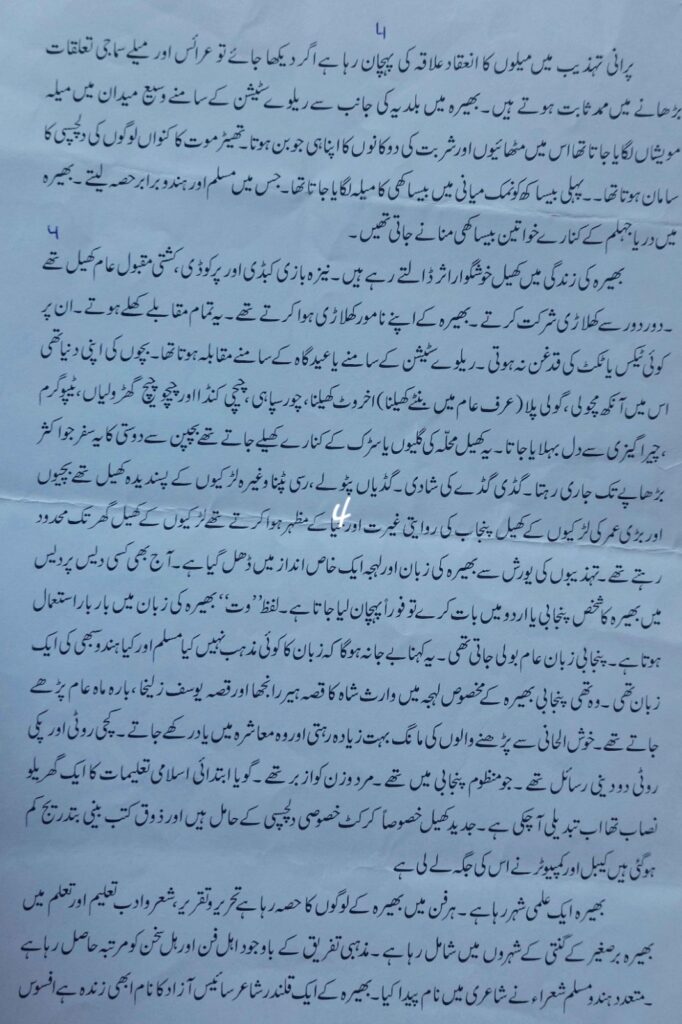 4
پرانی تہذیب میں میلوں کا انعقاد علاقہ کی پہچان رہا ہے اگر دیکھا جائے تو عرائس اور میلے سماجی تعلقات
بڑھانے میں ممد ثابت ہوتے ہیں۔ بھیرہ میں بلدیہ کی جانب سے ریلوے سٹیشن کے سامنے وسیع میدان میں میلہ
مویشاں لگایا جاتا تھا اس میں مٹھائیوں اور شربت کی دوکانوں کا اپنا ہی جوبن ہوتا۔ تھیٹر موت کا کنواں لوگوں کی دلچسپی کا
سامان ہوتا تھا۔۔ پہلی بیساکھ کو نمک میانی میں بیساکھی کا میلہ لگایا جاتا تھا۔ جس میں مسلم اور ہندو برابر حصہ لیتے۔ بھیرہ
میں دریا جہلم کے کنارے خواتین بیساکھی منانے جاتی تھیں۔
4
بھیرہ کی زندگی میں کھیل خوشگوار اثر ڈالتے رہے ہیں۔ نیزہ بازی کبڈی اور پرکوڈی، کشتی مقبول عام کھیل تھے
۔دور دور سے کھلاڑی شرکت کرتے۔ بھیرہ کے اپنے نامور کھلاڑی ہوا کرتے تھے۔ یہ تمام مقابلے کھلے ہوتے۔ ان پر
کوئی ٹیکس یا ٹکٹ کی قدغن نہ ہوتی۔ ریلوے سٹیشن کے سامنے یا عیدگاہ کے سامنے مقابلہ ہوتا تھا۔ بچوں کی اپنی دنیا تھی
اس میں آنکھ مچولی، گولی پلا (عرف عام میں بنٹے کھیلنا) اخروٹ کھیلنا، چور سپاہی، چیچی کنڈا اور چیچو چیچ گھڑولیاں، ٹیپوگرم
،چیرا گیزی سے دل بہلایا جاتا۔ یہ کھیل محلّہ کی گلیوں یا سڑک کے کنارے کھیلے جاتے تھے بچپن سے دوستی کا یہ سفر جو اکثر
بڑھاپے تک جاری رہتا۔ گڈی گڈے کی شادی۔ گڈیاں پٹولے، رسی ٹپنا وغیرہ لڑکیوں کے پسندیدہ کھیل تھے بچیوں
اور بڑی عمر کی لڑکیوں کے کھیل پنجاب کی روایتی غیرت اور کے مظہر ہوا کرتے تھے لڑکیوں کے کھیل گھر تک محدود
4
رہتے تھے۔ تہذیبوں کی یورش سے بھیرہ کی زبان اور لہجہ ایک خاص انداز میں ڈھل گیا ہے۔ آج بھی کسی دیس پردیس
میں بھیرہ کا شخص پنجابی یا اردو میں بات کرے تو فوراً پہچان لیا جاتا ہے۔ لفظ ”وت“ بھیرہ کی زبان میں بار بار استعمال
ہوتا ہے۔ پنجابی زبان عام بولی جاتی تھی۔ یہ کہنا بے جا نہ ہوگا کہ زبان کا کوئی مذہب نہیں کیا مسلم اور کیا ہندو سبھی کی ایک
زبان تھی۔ وہ تھی پنجابی بھیرہ کے مخصوص لہجہ میں وارث شاہ کا قصہ ہیر رانجھا اور قصہ یوسف زلیخا، بارہ ماہ عام پڑھے
جاتے تھے۔ خوش الحانی سے پڑھنے والوں کی مانگ بہت زیادہ رہتی اور وہ معاشرہ میں یاد رکھے جاتے۔ کچی روٹی اور پکی
روٹی دو دینی رسائل تھے۔ جو منظوم پنجابی میں تھے۔ مرد وزن کو ازبر تھے۔ گویا ابتدائی اسلامی تعلیمات کا ایک گھریلو
نصاب تھا اب تبدیلی آچکی ہے۔ جدید کھیل خصوصاً کرکٹ خصوصی دلچسپی کے حامل ہیں اور ذوق کتب بینی بتدریج کم
ہوگئی ہیں کیبل اور کمپیوٹر نے اس کی جگہ لے لی ہے
بھیرہ ایک علمی شہر رہا ہے۔ ہر فن میں بھیرہ کے لوگوں کا حصہ رہا ہے تحریر و تقریر، شعر و ادب تعلیم اور تعلم میں
بھیرہ برصغیر کے گنتی کے شہروں میں شامل رہا ہے۔ مذہبی تفریق کے باوجود اہل فن اور اہل سخن کو مرتبہ حاصل رہا ہے
۔متعدد ہندو مسلم شعراء نے شاعری میں نام پیدا کیا۔ بھیرہ کے ایک قلندر شاعر سائیں آزاد کا نام ابھی زندہ ہے افسوس